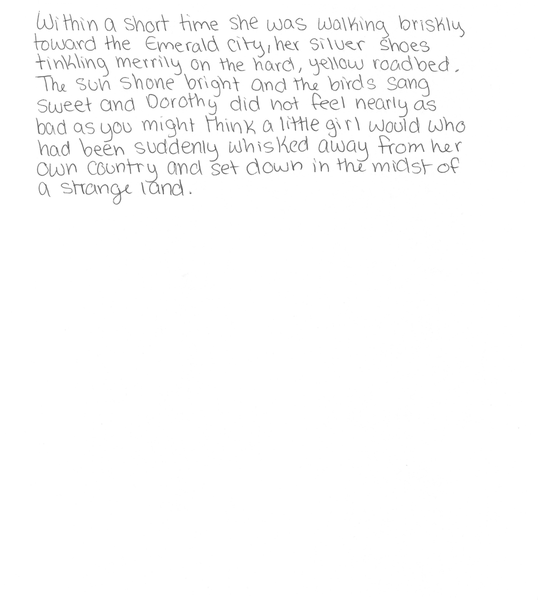 Within a short time she was walking briskly
toward the Emerald City, her silver shoes
tinkling merrily on the hard, yellow roadbed.
The sun shone bright and the birds sang
sweet and Dorothy did not feel nearly as
bad as you might think a little girl would who
had been suddenly whisked away from her
own country and set down in the midst of
a strange land.